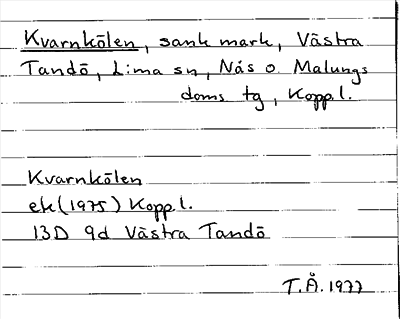 Kvarnkölen, sank mark, Västra
Tandö, Lima sn, Nås o. Malungs
doms tg, Kopp.l.
Kvarnkölen
ek (1975) Kopp.l.
13D 9d Västra Tandö
T.Å. 1977